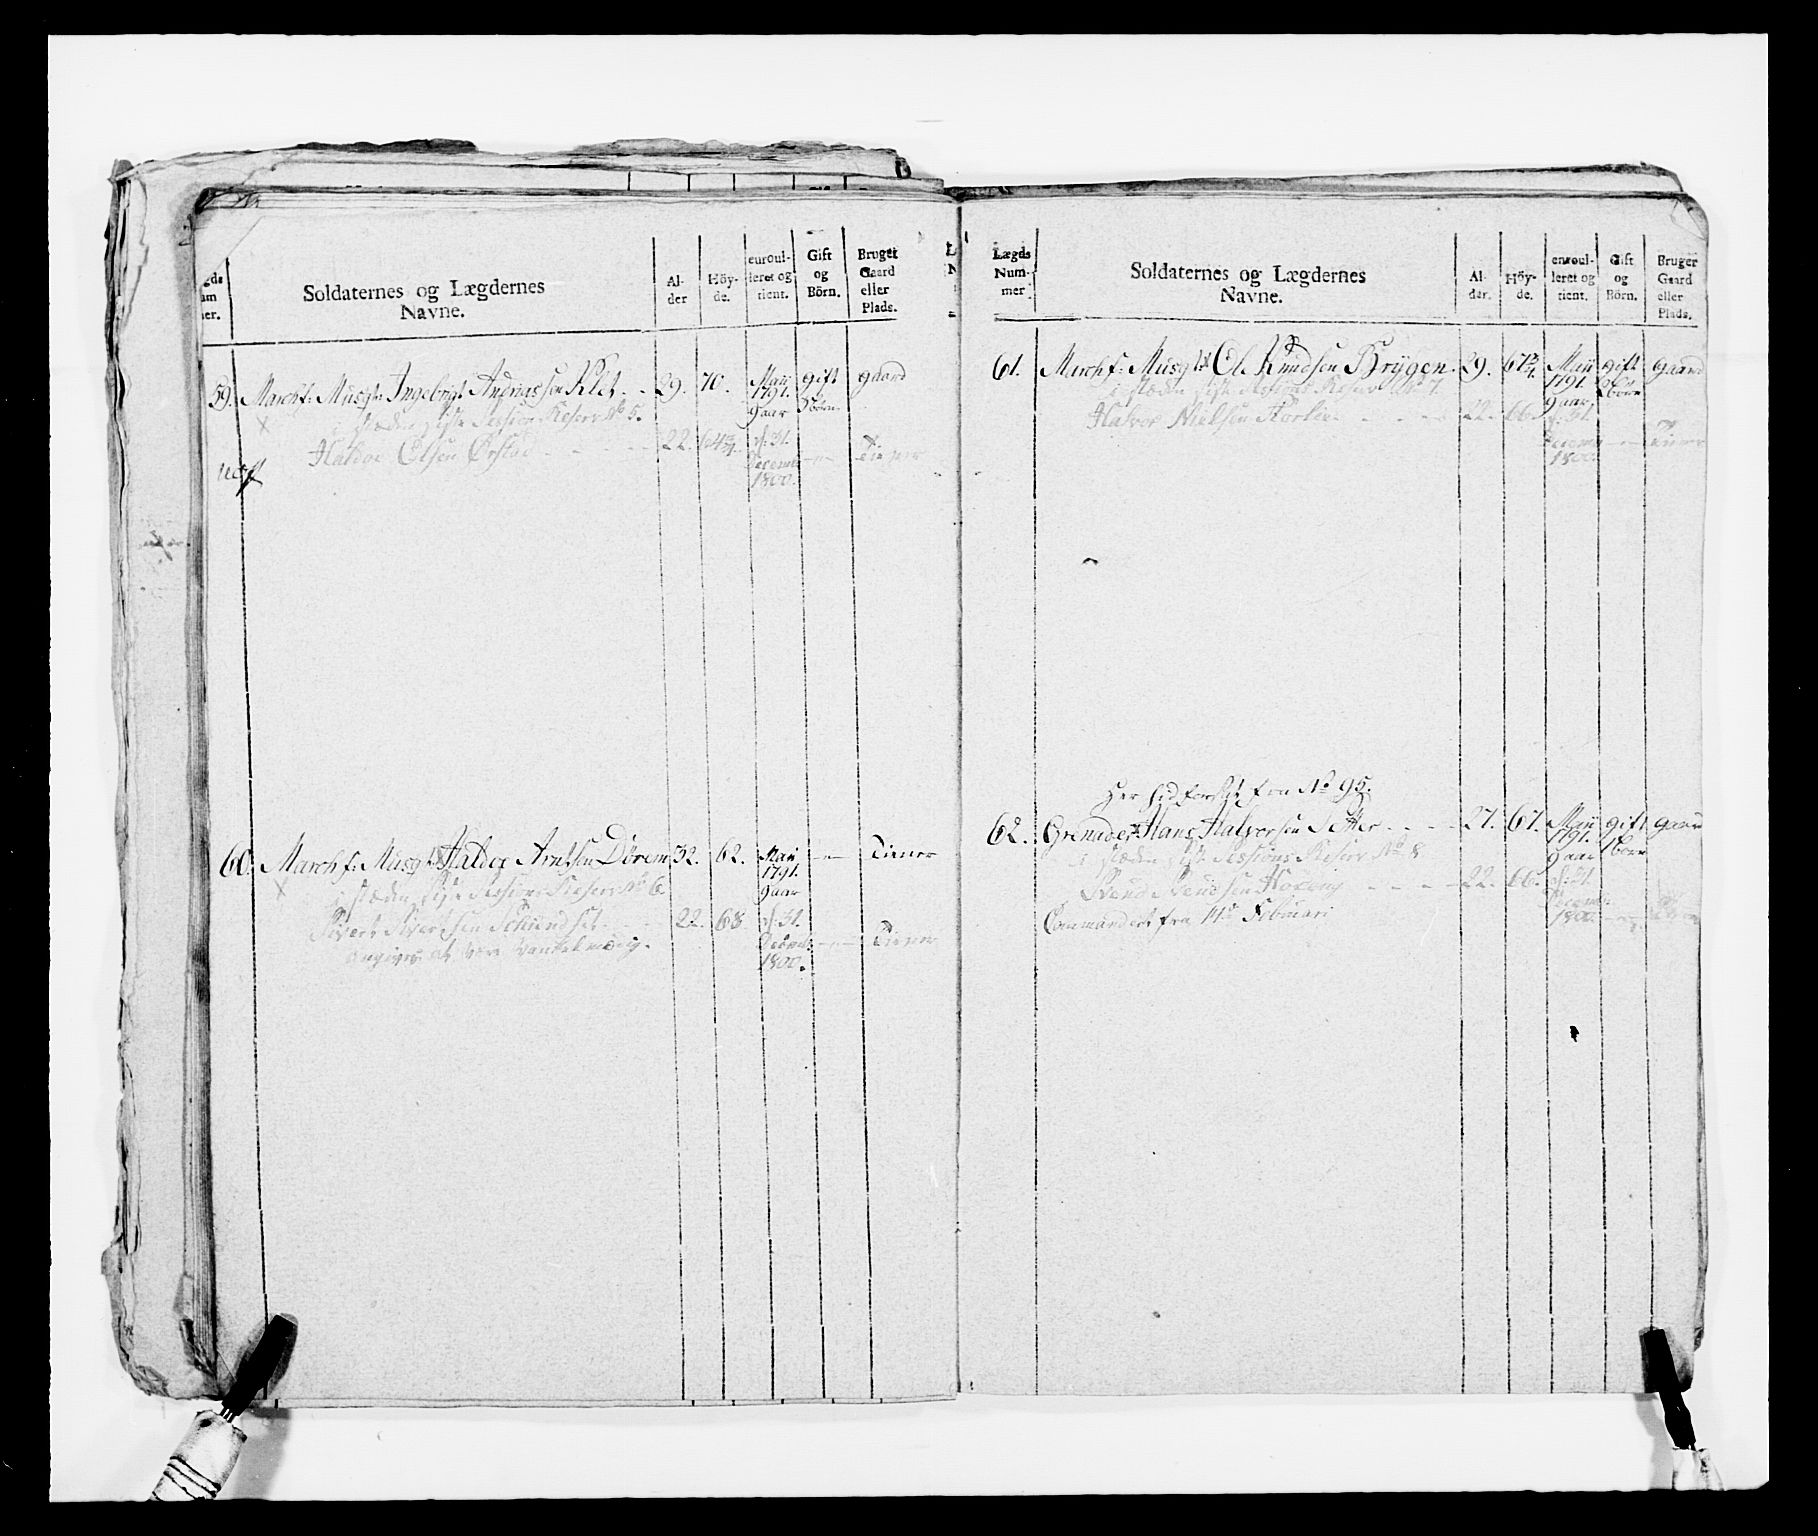 Lægds Num mer.
Soldaternes og Lægdernes
Navne.
Al-
der
Höy-
de.
enroul-
leret og
tient.
Gift
og
Börn.
Bruget
Gaard
eller
Plads.
59. Marchf: Musqt: Ingebrigt Andreassen Klet 29. 70. Maii 1791. 9 aar gift børn gaard
i stæden siste Sessions Reserv No 5.
Haldoe Olsen Ørstad 22. 64 3/4 d: 31. Decemb 1800. Tiener
60. Marchf: Musqt Haldoe Arntsen Dørem 32. 62. Maii 1791. 9 aar Tiener
i stæden siste Sessions Reserv No 6
Sivert Sivertsen 22. 68 d: 31. Decemb 1800. Tiener
angives at være vankelmodig.
Lægds
Num-
mer
Soldaternes og Lægdernes
Navne.
Al-
der.
Höy-
de.
enroul-
leret og
tient.
Gift
og
Börn.
Bruger
Gaard
eller
Plads.
61. Marchf: Musqt Ole Knudsen Bryggen 29. 67 Maii 1791. 9 aar gift børn gaard
i stæden siste Sessions Reserv No 7.
Halvor Nielsen 22. 66. d: 31. Decemb 1800. Tiener
Her hidforsat fra No 95.
62. Grenader Hans Halvorsen Setter 27. 67. Maii 1791. 9 aar gift 1 børn gaard
i stæden siste Sessions Reserv No 8
22. 66. d: 31. Decemb 1800. Tiener
Commanderet fra 1ste Februari